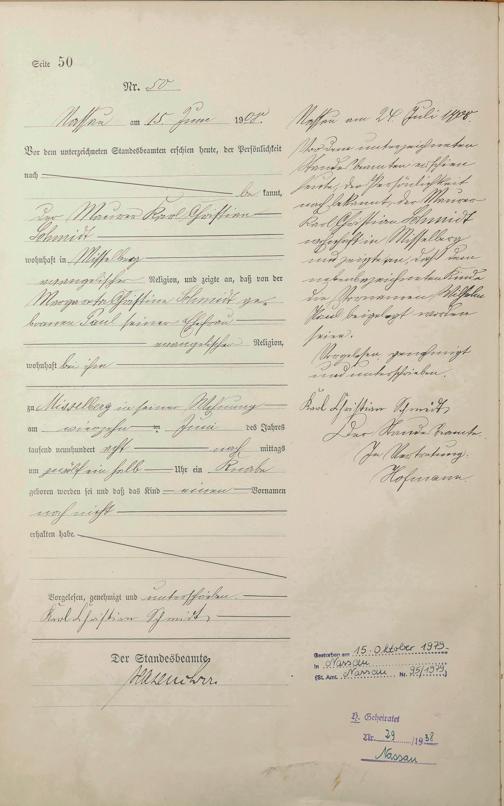 Seite 50
Nr. 50
Nassau am 15. Juni 1908.
Vor dem unterzeichneten Standesbeamten erschien heute, der Persönlichkeit
nach
be kannt,
der Maurer Karl Christian
Schmidt
wohnhaft in Misselberg
evangelischer Religion, und zeigte an, daß von der
Margareta Christine Schmidt ge-
borenen Paul seiner Ehefrau
evangelischer Religion,
wohnhaft bei ihm
zu Misselberg in seiner Wohnung
am vierzehn ten Juni des Jahres
tausend neunhundert acht nach mittags
um zwölf ein halb Uhr ein Knabe
geboren worden sei und daß das Kind einen Vornamen
noch nicht
erhalten habe.
Vorgelesen, genehmigt und unterschrieben.
Karl Christian Schmidt
Der Standesbeamte
Nassau am 24. Juli 1908.
Vor dem unterzeichneten
Standesbeamten erschien
heute, der Persönlichkeit
nach bekannt, der Maurer
Karl Christian Schmidt
wohnhaft in Misselberg
und zeigte an, daß dem
nebenbezeichneten Kinde
die Vornamen Wilhelm
Paul beigelegt worden
seien.
Vorgelesen, genehmigt
und unterschrieben.
Karl Christian Schmidt
Der Standesbeamte.
In Vertretung.
Hofmann.
Gestorben am 15. Oktober 1979
in Nassau
(St. Amt Nassau Nr. 95/1979)
Geheiratet
Nr. 29 /19 38
Nassau